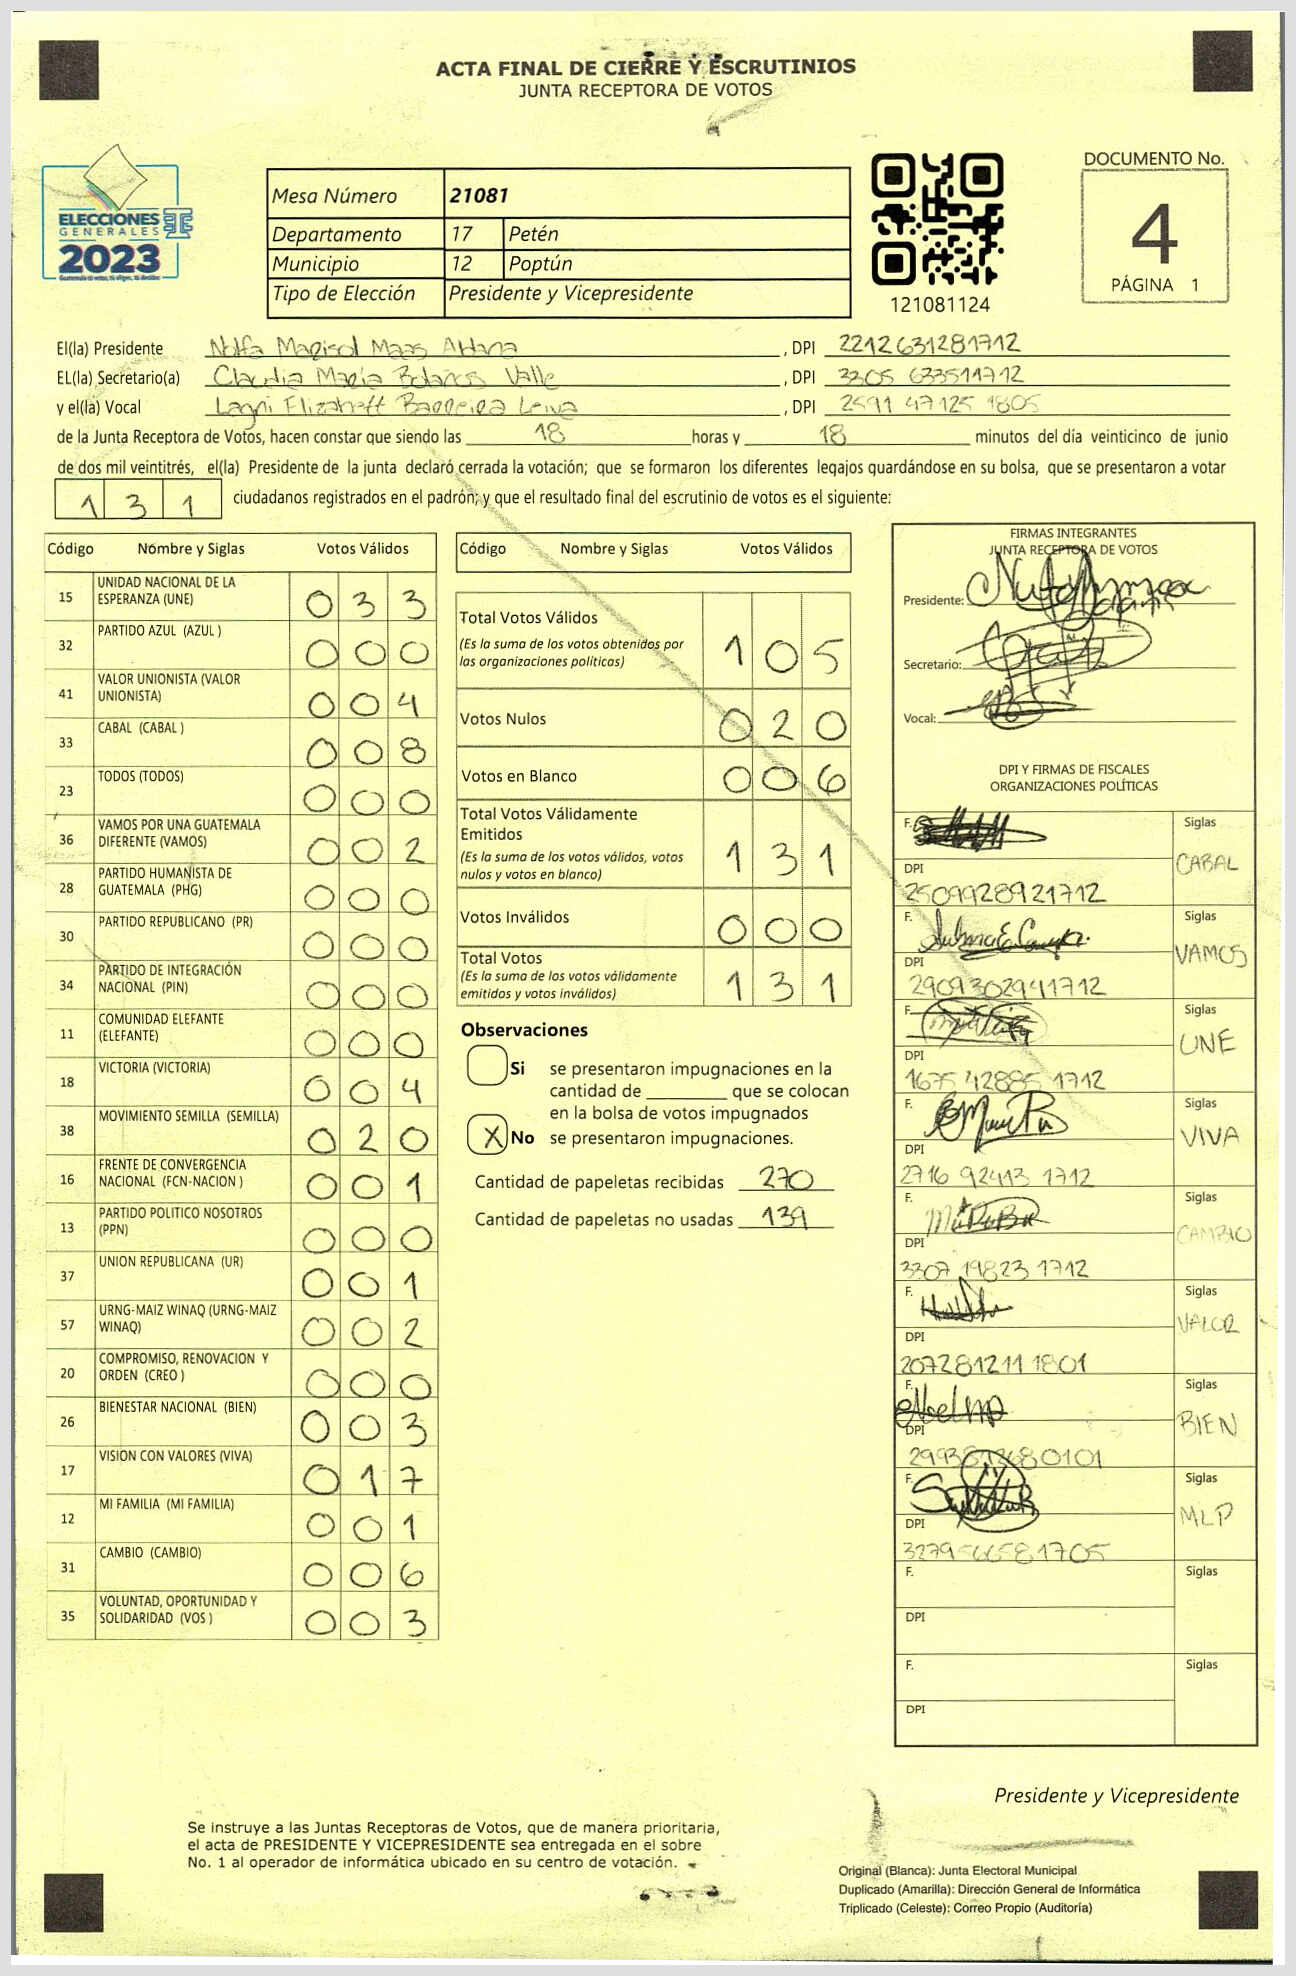 ACTA FINAL DE CIERRE Y ESCRUTINIOS
JUNTA RECEPTORA DE VOTOS
ELECCIONES
GENERALES
2023
Mesa Número 21081
Departamento 17 Petén
Municipio 12 Poptún
Tipo de Elección Presidente y Vicepresidente
121081124
DOCUMENTO No.
4
PÁGINA 1
El(la) Presidente Marisol Maas Aldana , DPI 2212631281712
EL(la) Secretario(a) Claudia María Bolaños Valle , DPI 3305 633511712
y el(la) Vocal Barreira Leiva , DPI 2591 47125 1805
de la Junta Receptora de Votos, hacen constar que siendo las 18 horas y 18 minutos del día veinticinco de junio
de dos mil veintitrés, el(la) Presidente de la junta declaró cerrada la votación; que se formaron los diferentes legajos guardándose en su bolsa, que se presentaron a votar
131 ciudadanos registrados en el padrón; y que el resultado final del escrutinio de votos es el siguiente:
Código Nombre y Siglas Votos Válidos
15 UNIDAD NACIONAL DE LA ESPERANZA (UNE) 033
32 PARTIDO AZUL (AZUL ) 000
41 VALOR UNIONISTA (VALOR UNIONISTA) 004
33 CABAL (CABAL ) 008
23 TODOS (TODOS) 000
36 VAMOS POR UNA GUATEMALA DIFERENTE (VAMOS) 002
28 PARTIDO HUMANISTA DE GUATEMALA (PHG) 000
30 PARTIDO REPUBLICANO (PR) 000
34 PARTIDO DE INTEGRACIÓN NACIONAL (PIN) 000
11 COMUNIDAD ELEFANTE (ELEFANTE) 000
18 VICTORIA (VICTORIA) 004
38 MOVIMIENTO SEMILLA (SEMILLA) 020
16 FRENTE DE CONVERGENCIA NACIONAL (FCN-NACION ) 001
13 PARTIDO POLITICO NOSOTROS (PPN) 000
37 UNION REPUBLICANA (UR) 001
57 URNG-MAIZ WINAQ (URNG-MAIZ WINAQ) 002
20 COMPROMISO, RENOVACION Y ORDEN (CREO ) 000
26 BIENESTAR NACIONAL (BIEN) 003
17 VISION CON VALORES (VIVA) 017
12 MI FAMILIA (MI FAMILIA) 001
31 CAMBIO (CAMBIO) 006
35 VOLUNTAD, OPORTUNIDAD Y SOLIDARIDAD (VOS ) 003
Código Nombre y Siglas Votos Válidos
Total Votos Válidos 105
(Es la suma de los votos obtenidos por
las organizaciones políticas)
Votos Nulos 020
Votos en Blanco 006
Total Votos Válidamente
Emitidos 131
(Es la suma de los votos válidos, votos
nulos y votos en blanco)
Votos Inválidos 000
Total Votos 131
(Es la suma de los votos válidamente
emitidos y votos inválidos)
Observaciones
Si se presentaron impugnaciones en la
cantidad de ________ que se colocan
en la bolsa de votos impugnados
X No se presentaron impugnaciones.
Cantidad de papeletas recibidas 270
Cantidad de papeletas no usadas 139
FIRMAS INTEGRANTES
JUNTA RECEPTORA DE VOTOS
Presidente:
Secretario:
Vocal:
DPI Y FIRMAS DE FISCALES
ORGANIZACIONES POLÍTICAS
F. Siglas
CABAL
DPI
2509928921712
F. Siglas
VAMOS
DPI
2909302941712
F. Siglas
UNE
DPI
1675 42885 1712
F. Siglas
VIVA
DPI
2716 92413 1712
F. Siglas
CAMBIO
DPI
3307 19823 1712
F. Siglas
VALOR
DPI
2072812111801
F. Siglas
BIEN
DPI
F. Siglas
MLP
DPI
3279566581705
F. Siglas
DPI
F. Siglas
DPI
Presidente y Vicepresidente
Se instruye a las Juntas Receptoras de Votos, que de manera prioritaria,
el acta de PRESIDENTE Y VICEPRESIDENTE sea entregada en el sobre
No. 1 al operador de informática ubicado en su centro de votación.
Original (Blanca): Junta Electoral Municipal
Duplicado (Amarilla): Dirección General de Informática
Triplicado (Celeste): Correo Propio (Auditoría)